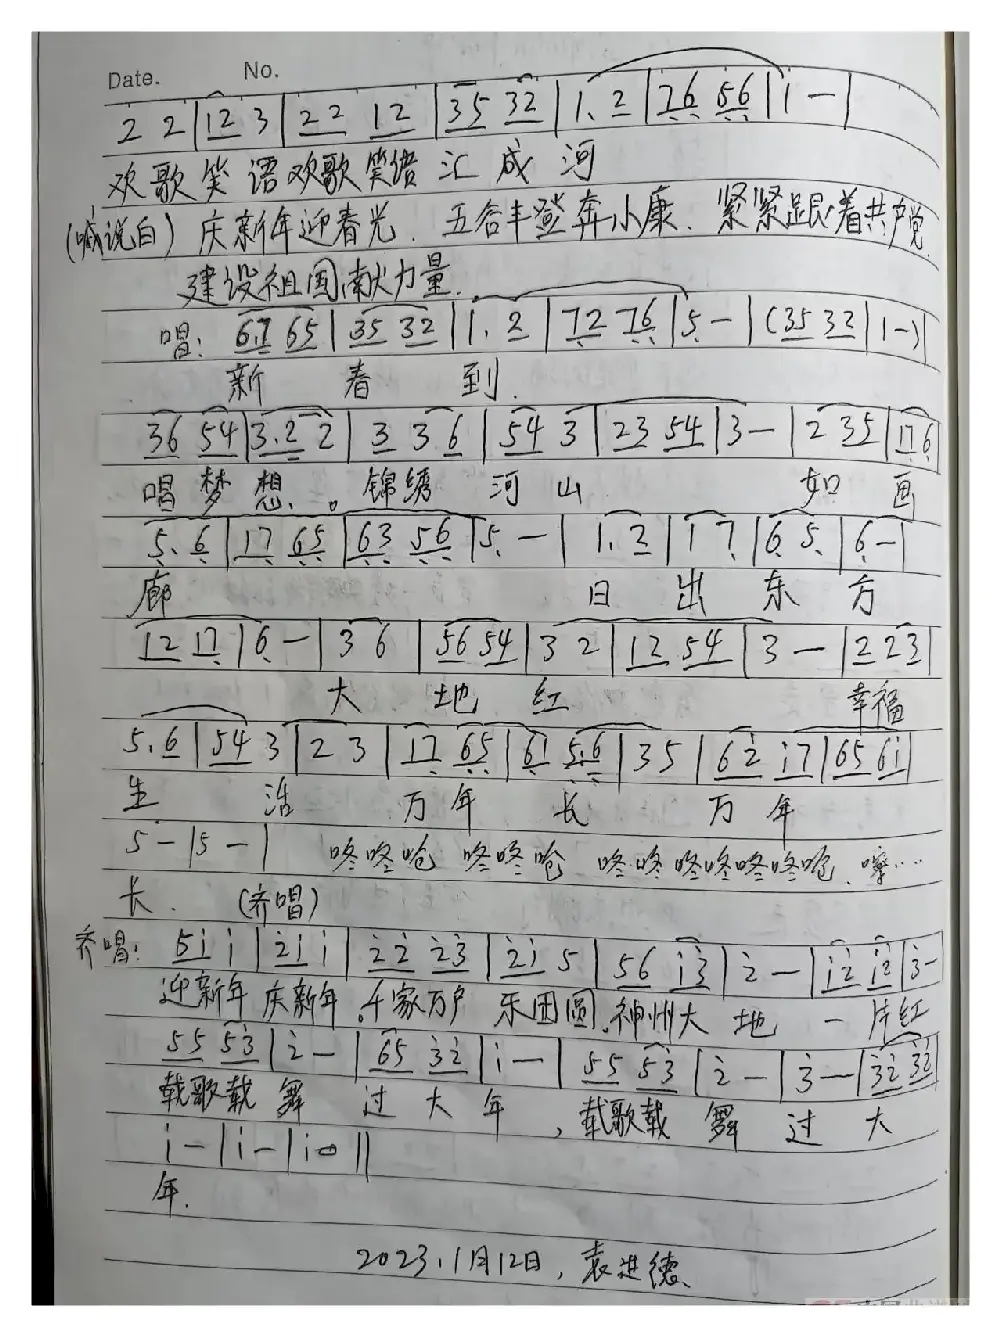 Date. No.
2 2 | 12 3 | 22 12 | 35 32 | 1. 2 | 76 56 | 1 — |
欢歌笑语欢歌笑语汇成河
(喊说白) 庆新年迎春光. 五谷丰登奔小康. 紧紧跟着共产党
建设祖国献力量.
唱: 6.7 65 | 35 32 | 1. 2 | 72 76 | 5 — | (35 32 | 1 —)
新春到.
36 54 | 3.2 2 | 3 3 6 | 54 3 | 23 54 | 3 — | 2 35 | 17 6
唱梦想.。锦绣河山 如画
5. 6 | 17 65 | 63 56 | 5 — | 1. 2 | 1 7 | 6 5 | 6 —
廊 日出东方
12 17 | 6 — | 3 6 | 56 54 | 3 2 | 12 54 | 3 — | 2 23 |
大地红 幸福
5. 6 | 54 3 | 2 3 | 17 65 | 61 5.6 | 3 5 | 62 17 | 65 61 |
生活万年长万年
5 — | 5 — | 咚咚呛 咚咚呛 咚咚咚咚咚咚呛.
长. (齐唱)
齐唱: 51 1 | 21 1 | 22 23 | 21 5 | 56 13 | 2 — | 12 12 | 3 —
迎新年 庆新年.千家万户 乐团圆.神州大地一片红
55 53 | 2 — | 65 32 | 1 — | 55 53 | 2 — | 3 — | 32 32
载歌载舞过大年,载歌载舞过大
1 — | 1 — | 1 0 ||
年.
2023.1月12日, 袁进德.